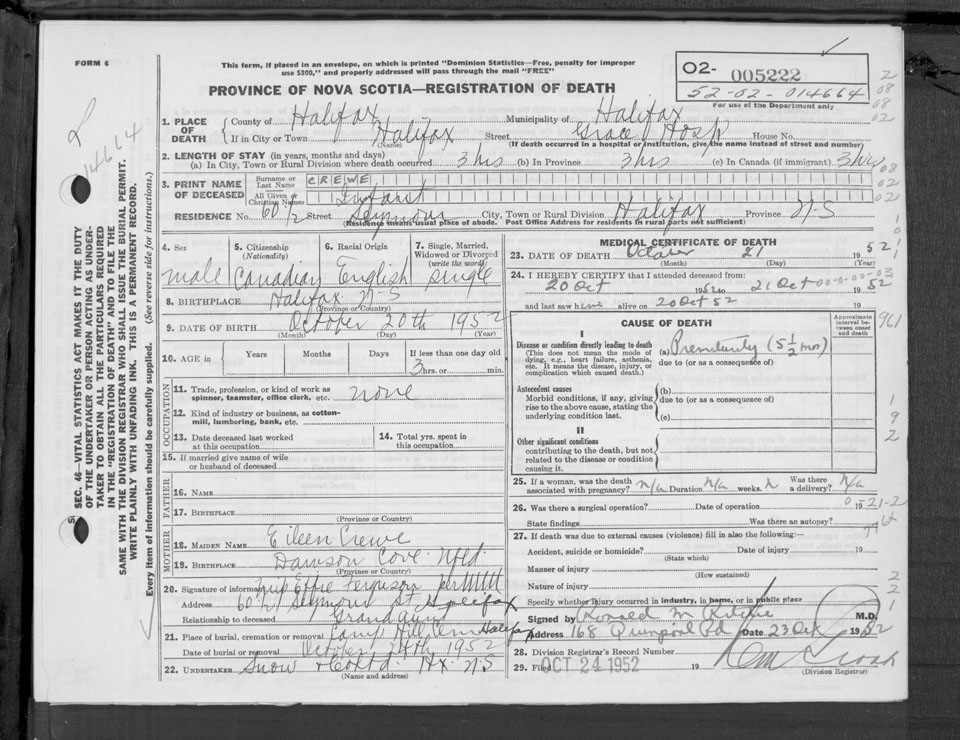 FORM 6
This form, if placed in an envelope, on which is printed "Dominion Statistics—Free, penalty for improper
use $300," and properly addressed will pass through the mail "FREE"
PROVINCE OF NOVA SCOTIA—REGISTRATION OF DEATH
O2- 005222
52-02-014664
For use of the Department only
14614
SEC. 46—VITAL STATISTICS ACT MAKES IT THE DUTY
OF THE UNDERTAKER OR PERSON ACTING AS UNDER-
TAKER TO OBTAIN ALL THE PARTICULARS REQUIRED
IN THE "REGISTRATION OF DEATH" AND TO FILE THE
SAME WITH THE DIVISION REGISTRAR WHO SHALL ISSUE THE BURIAL PERMIT.
WRITE PLAINLY WITH UNFADING INK. THIS IS A PERMANENT RECORD.
Every item of information should be carefully supplied. (See reverse side for instructions.)
1. PLACE OF DEATH
County of Halifax Municipality of Halifax
If in City or Town Halifax Street Grace Hosp House No.
(Name) (If death occurred in a hospital or institution, give the name instead of street and number)
2. LENGTH OF STAY (in years, months and days)
(a) In City, Town or Rural Division where death occurred 3 hrs (b) In Province 3 hrs (c) In Canada (if immigrant) 3 hrs
3. PRINT NAME OF DECEASED
Surname or Last Name CREWE
All Given or Christian Names Infant
RESIDENCE No. 60 1/2 Street Seymour City, Town or Rural Division Halifax Province N-S
(Residence means usual place of abode. Post Office Address for residents in rural parts not sufficient)
4. Sex
male
5. Citizenship (Nationality)
Canadian
6. Racial Origin
English
7. Single, Married, Widowed or Divorced (write the word)
single
8. BIRTHPLACE Halifax N-S
(Province or Country)
9. DATE OF BIRTH October 20th 1952
(Month) (Day) (Year)
10. AGE in Years Months Days If less than one day old
3 hrs. or min.
OCCUPATION
11. Trade, profession, or kind of work as
spinner, teamster, office clerk, etc. none
12. Kind of industry or business, as cotton-
mill, lumbering, bank, etc.
13. Date deceased last worked
at this occupation
14. Total yrs. spent in
this occupation
15. If married give name of wife
or husband of deceased
FATHER
16. NAME
17. BIRTHPLACE
(Province or Country)
MOTHER
18. MAIDEN NAME Eileen Crewe
19. BIRTHPLACE Dawson Cove Nfld.
(Province or Country)
20. Signature of informant Effie Ferguson per
Address 60 1/2 Seymour St Halifax
Relationship to deceased Grand aunt
21. Place of burial, cremation or removal Camp Hill Cem Halifax
Date of burial or removal October 24th 1952
22. UNDERTAKER Snow & Co Ltd. Hx N.S
(Name and address)
MEDICAL CERTIFICATE OF DEATH
23. DATE OF DEATH October 21 1952
(Month) (Day) (Year)
24. I HEREBY CERTIFY that I attended deceased from:
20 Oct 1952 to 21 Oct 1952
00-0-00-03
and last saw h alive on 20 Oct 52 19
CAUSE OF DEATH
Approximate interval between onset and death
I
Disease or condition directly leading to death
(This does not mean the mode of
dying, e.g., heart failure, asthenia,
etc. It means the disease, injury, or
complication which caused death.)
(a) Prematurity (5 1/2 mos)
due to (or as a consequence of)
Antecedent causes
Morbid conditions, if any, giving
rise to the above cause, stating the
underlying condition last.
(b)
due to (or as a consequence of)
(c)
II
Other significant conditions
contributing to the death, but not
related to the disease or condition
causing it.
25. If a woman, was the death
associated with pregnancy? n/a Duration n/a weeks. Was there
a delivery? n/a
26. Was there a surgical operation? Date of operation 19
State findings Was there an autopsy?
27. If death was due to external causes (violence) fill in also the following:—
Accident, suicide or homicide? Date of injury 19
(State which)
Manner of injury
(How sustained)
Nature of injury
Specify whether injury occurred in industry, in home, or in public place
Signed by Ronald M Ritchie M.D.
Address 168 Quinpool Rd Date 23 Oct 1952
28. Division Registrar's Record Number
29. Filed OCT 24 1952 19
(Division Registrar)